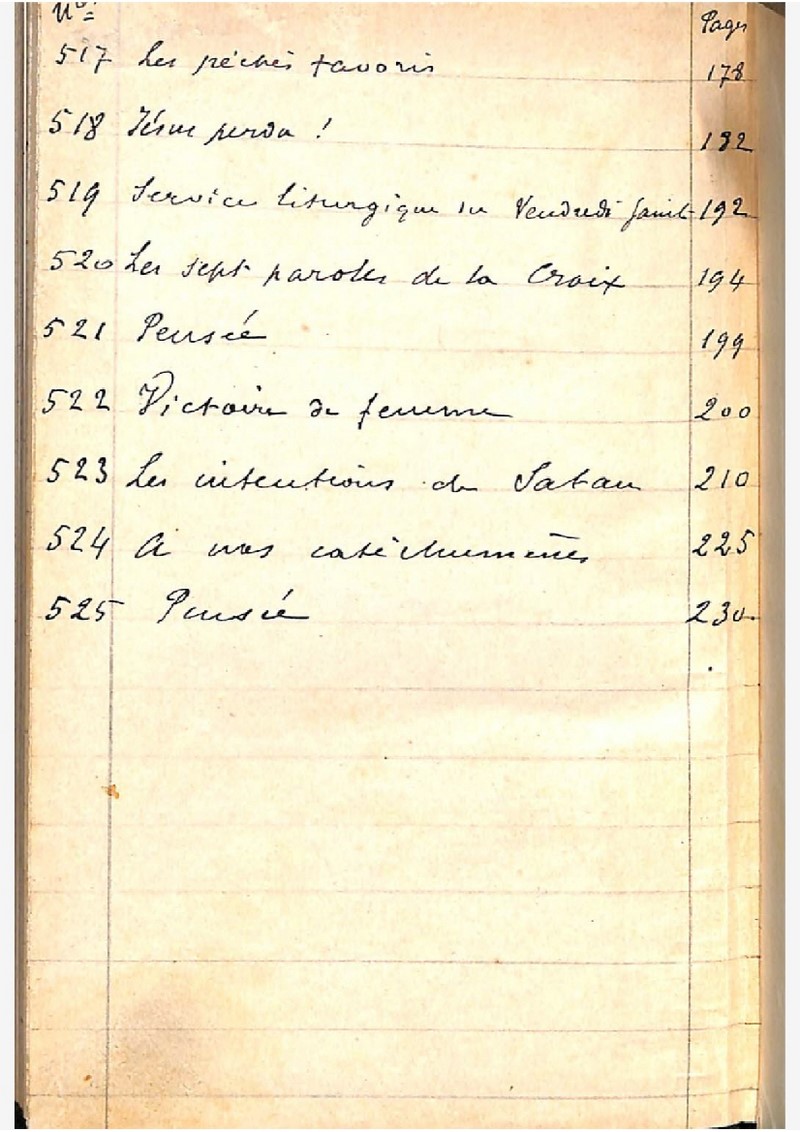 Nos. Pages
517 Les péchés favoris 178
518 Jésus perdu ! 182
519 Service liturgique du Vendredi saint 192
520 Les sept paroles de la Croix 194
521 Pensée 199
522 Victoire de femme 200
523 Les intentions de Satan 210
524 A nos catéchumènes 225
525 Pensée 230